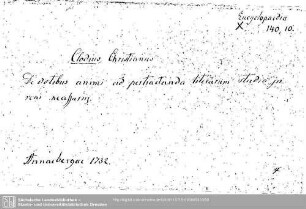 Encyclopaedia
X 140, 10.
Clodius, Christianus
De dotibus animi ad pertractanda literarum studia ju
veni necessariis.
Annaebergae 1732.
4
Sächsische Landesbibliothek -
Staats- und Universitätsbibliothek Dresden